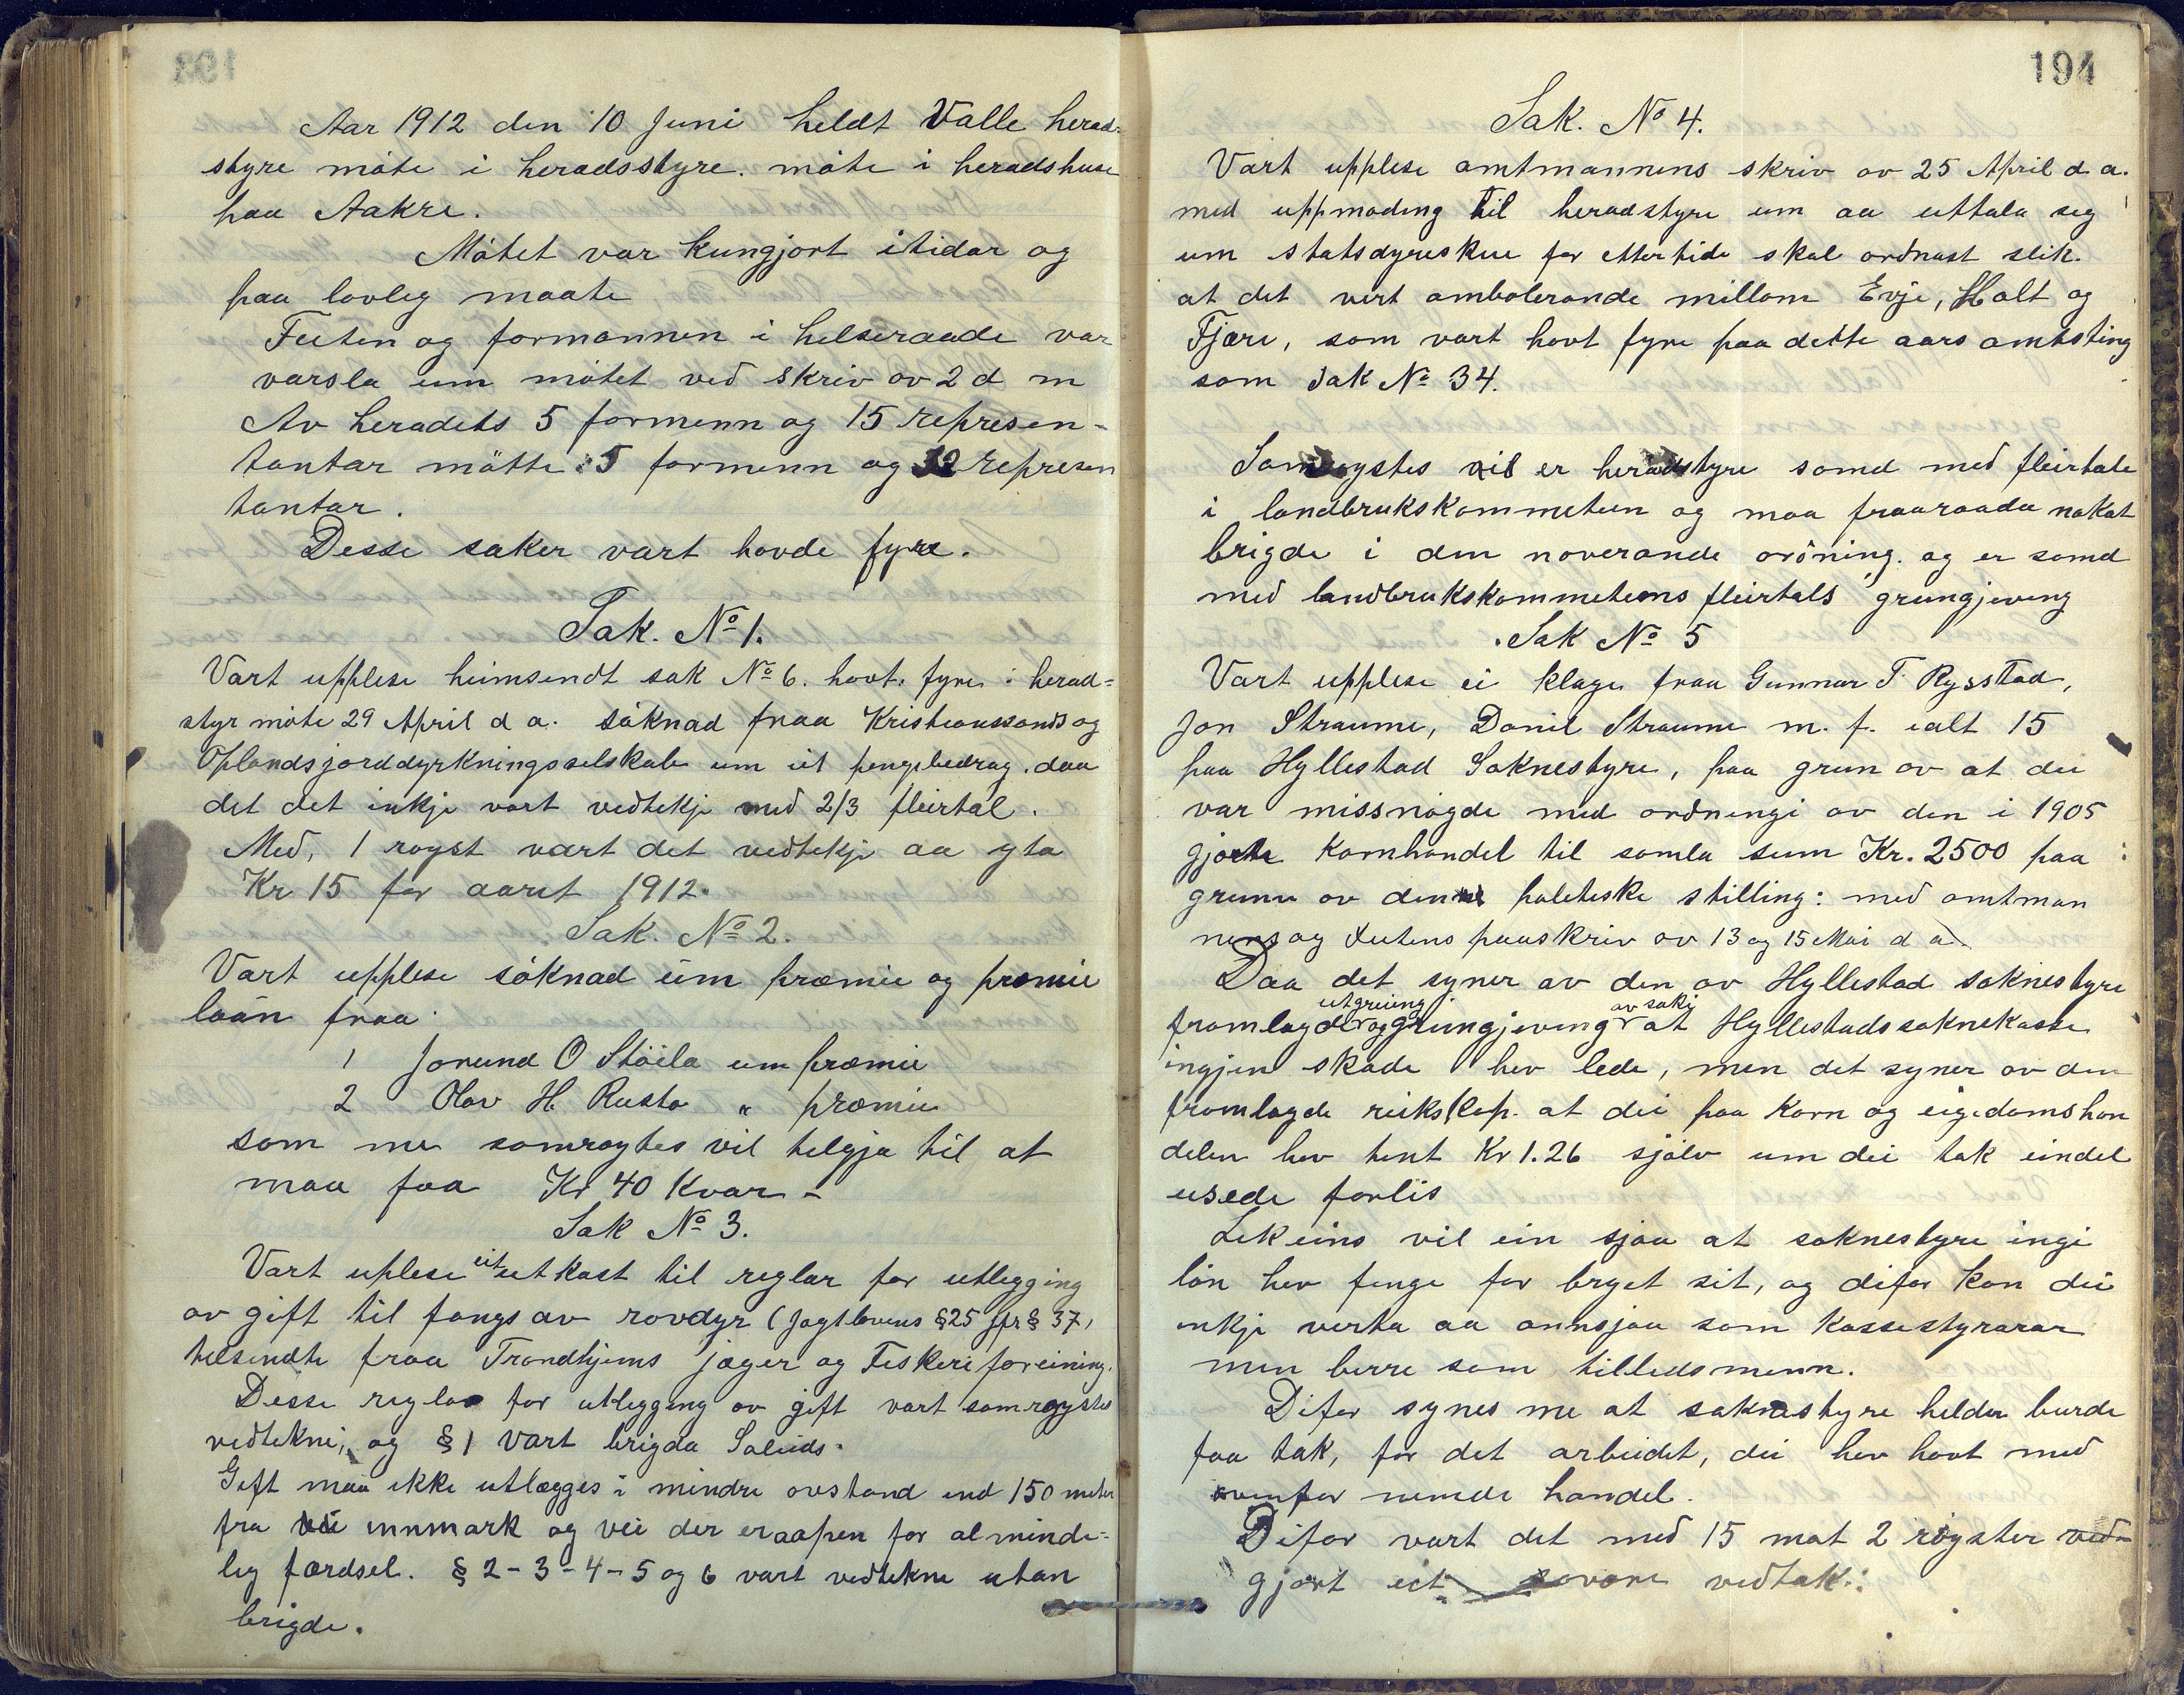 Aar 1912 den 10 Juni heldt Valle herad-
styre möte i heradsstyre. möte i heradshuse
paa Aakre.
Mötet var kungjort itidar og
paa lovleg maate
Futen og formannen i helseraade var
varsla um mötet ved skriv av 2 d m
Av heradets 5 formenn og 15 represen-
tantar mötte: 5 formenn og 12 represen
tantar.
Desse saker vart hovde fyre.
Sak. No 1.
Vart upplese heimsendt sak No 6. havt. fyre i herad=
styr möte 29 April d a. söknad fraa Kristianssands og
Oplandsjorddyrkningsselskab um eit pengebedrag. daa
det det inkje vart vedtekje med 2/3 fleirtal.
Med, 1 røyst vart det vedtekje aa yta
Kr 15 for aaret 1912.
Sak. No 2.
Vart upplese söknad um præmie og præmie
laan fraa
1 Jorund O Stöila um præmie
2 Olav H. Rusta " præmie
som me samroytes vil telgja til at
maa faa Kr 40 kvar -
Sak No 3.
Vart uplese eit utkast til reglar for utlegging
av gift til fangs av rovdyr (Jagtlovens §25 jfr § 37,
telsendte fraa Trondhjems jæger og Feskeriforeining.
Desse reglar for utlegging av gift vart samrøystes
vedtekne, og § 1 vart brigda Saleids.
Gift maa ikke utlægges i mindre avstand end 150 meter
fra innmark og vei der er aapen for alminde=
lig færdsel. § 2-3-4-5 og 6 vart vedtekne utan
brigde.
194
Sak. No 4.
Vart upplese amtmannens skriv av 25 April d a.
med uppmoding til heradstyre um aa uttala seg
um statsdyreskue for ettertide skal ordnast slik.
at det vert ambolerande millom Evje, Holt og
Fjære, som vart havt fyre paa dette aars amtsting
som Sak No 34.
Samrøystes vil er heradstyre samd med fleirtale
i landbrukskommeteen og maa fraaraada nokot
brigde i den noverande ordning. og er samd
med landbrukskommeteens fleirtals grungjeving
Sak No 5
Vart upplese ei klage fraa Gunnar T. Rysstad,
Jon Straume, Daniel Straume m. f. ialt 15
paa Hyllestad Soknestyre, paa grun av at dei
var missnögde med ordningi av den i 1905
gjorte kornhandel til samla sum Kr. 2500 paa
grunn av den poleteske stilling: med amtman
nens og futens paaskriv av 13 og 15 Mai d a.
Daa det syner av den av Hyllestad soknestyre
utgreiing av saki
framlagde og grungjeving at Hyllestads soknekasse
ingjen skade hev lede, men det syner av den
framlagde reikskap. at dei paa korn og eigedomshan
delen hev tent Kr 1.26 sjölv um dei tok eindel
usede forlis
Lekeins vil ein sjaa at soknestyre ingi
lön hev fenge for bryet sit, og difor kan dei
inkje verta aa annsjaa som kassestyrarar
men berre som tilledsmenn.
Difor synes me at soknestyre helder burde
faa tak, for det arbeidet, dei hev havt med
ovenfor nemde handel.
Difor vart det med 15 mot 2 röyster
gjort eit vedtak: